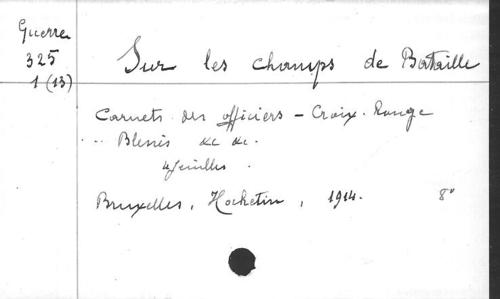 Guerre
325
1 (13)
Sur les champs de Bataille
Carnets des officiers - Croix-Rouge
.. Blessés &c &c.
4 feuilles.
Bruxelles, 1914. 8°